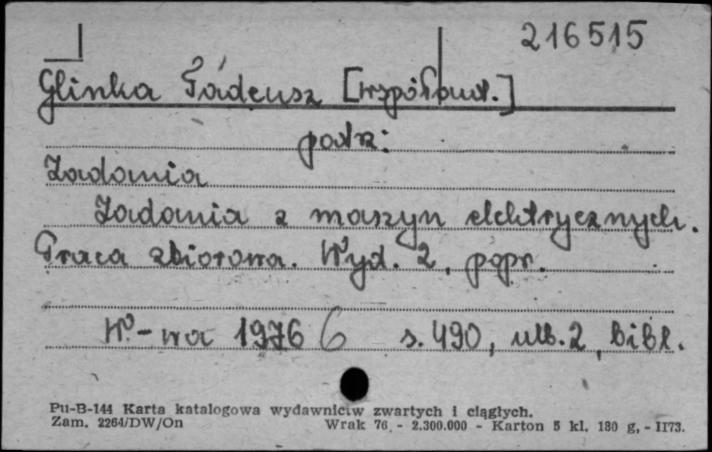 216515
Glinka Tadeusz [współaut.]
patrz:
Zadania
Zadania z maszyn elektrycznych.
Praca zbiorowa. Wyd. 2, popr.
W-wa 1976 6 s. 490, nlb. 2, bibl.
Pu-B-144 Karta katalogowa wydawnictw zwartych i ciągłych.
Zam. 2264/DW/On Wrak 76. - 2.300.000 - Karton 5 kl. 180 g, - II73.